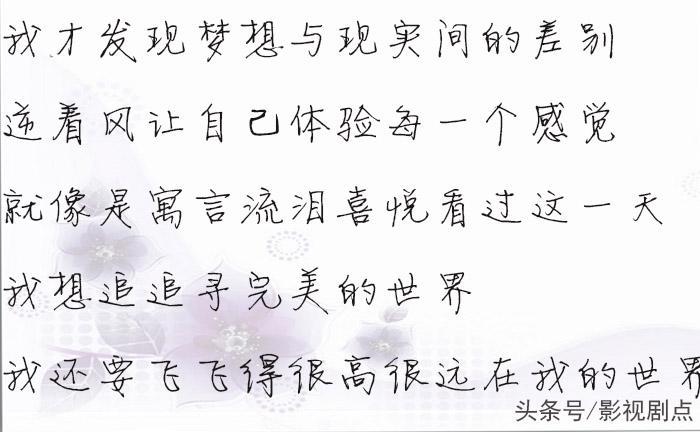 我才发现梦想与现实间的差别
逆着风让自己体验每一个感觉
就像是寓言流泪喜悦看过这一天
我想追追寻完美的世界
我还要飞飞得很高很远在我的世界
头条号/影视剧点